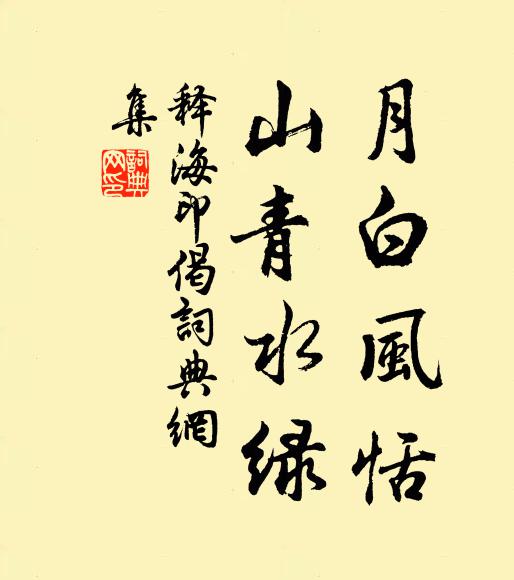 月白風恬
山青水緑
释海印偈詞典網
集
詞典网印